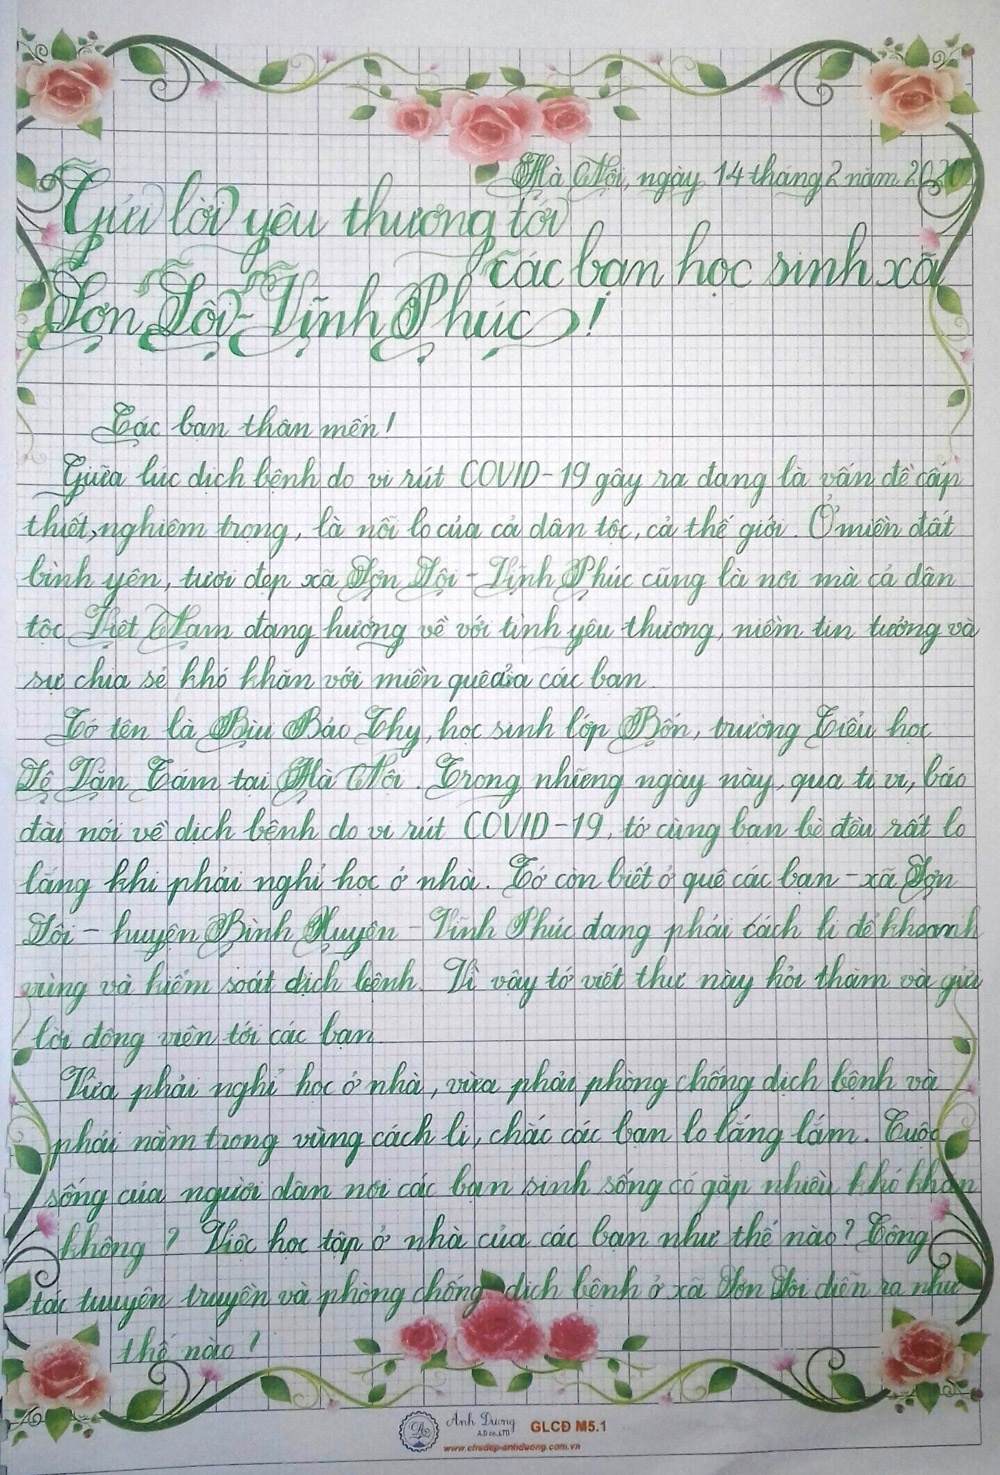 Hà Nội, ngày 14 tháng 2 năm 2020
Gửi lời yêu thương tới
các bạn học sinh xã
Sơn Lôi - Vĩnh Phúc!
Các bạn thân mến!
Giữa lúc dịch bệnh do vi rút COVID-19 gây ra đang là vấn đề cấp
thiết, nghiêm trọng, là nỗi lo của cả dân tộc, cả thế giới. Ở miền đất
bình yên, tươi đẹp xã Sơn Lôi - Vĩnh Phúc cũng là nơi mà cả dân
tộc Việt Nam đang hướng về với tình yêu thương, niềm tin tưởng và
sự chia sẻ khó khăn với miền quê của các bạn.
Tớ tên là Bùi Bảo Thy, học sinh lớp Bốn, trường Tiểu học
Lê Văn Tám tại Hà Nội. Trong những ngày này, qua ti vi, báo
đài nói về dịch bệnh do vi rút COVID-19, tớ cùng bạn bè đều rất lo
lắng khi phải nghỉ học ở nhà. Tớ còn biết ở quê các bạn - xã Sơn
Lôi - huyện Bình Xuyên - Vĩnh Phúc đang phải cách li để khoanh
vùng và kiểm soát dịch bệnh. Vì vậy tớ viết thư này hỏi thăm và gửi
lời động viên tới các bạn.
Vừa phải nghỉ học ở nhà, vừa phải phòng chống dịch bệnh và
phải nằm trong vùng cách li, chắc các bạn lo lắng lắm. Cuộc
sống của người dân nơi các bạn sinh sống có gặp nhiều khó khăn
không? Việc học tập ở nhà của các bạn như thế nào? Công
tác tuuyên truyền và phòng chống dịch bệnh ở xã Sơn Lôi diễn ra như
thế nào?
Ánh Dương
A.D co.,LTD
GLCĐ M5.1
www.chudep-anhduong.com.vn